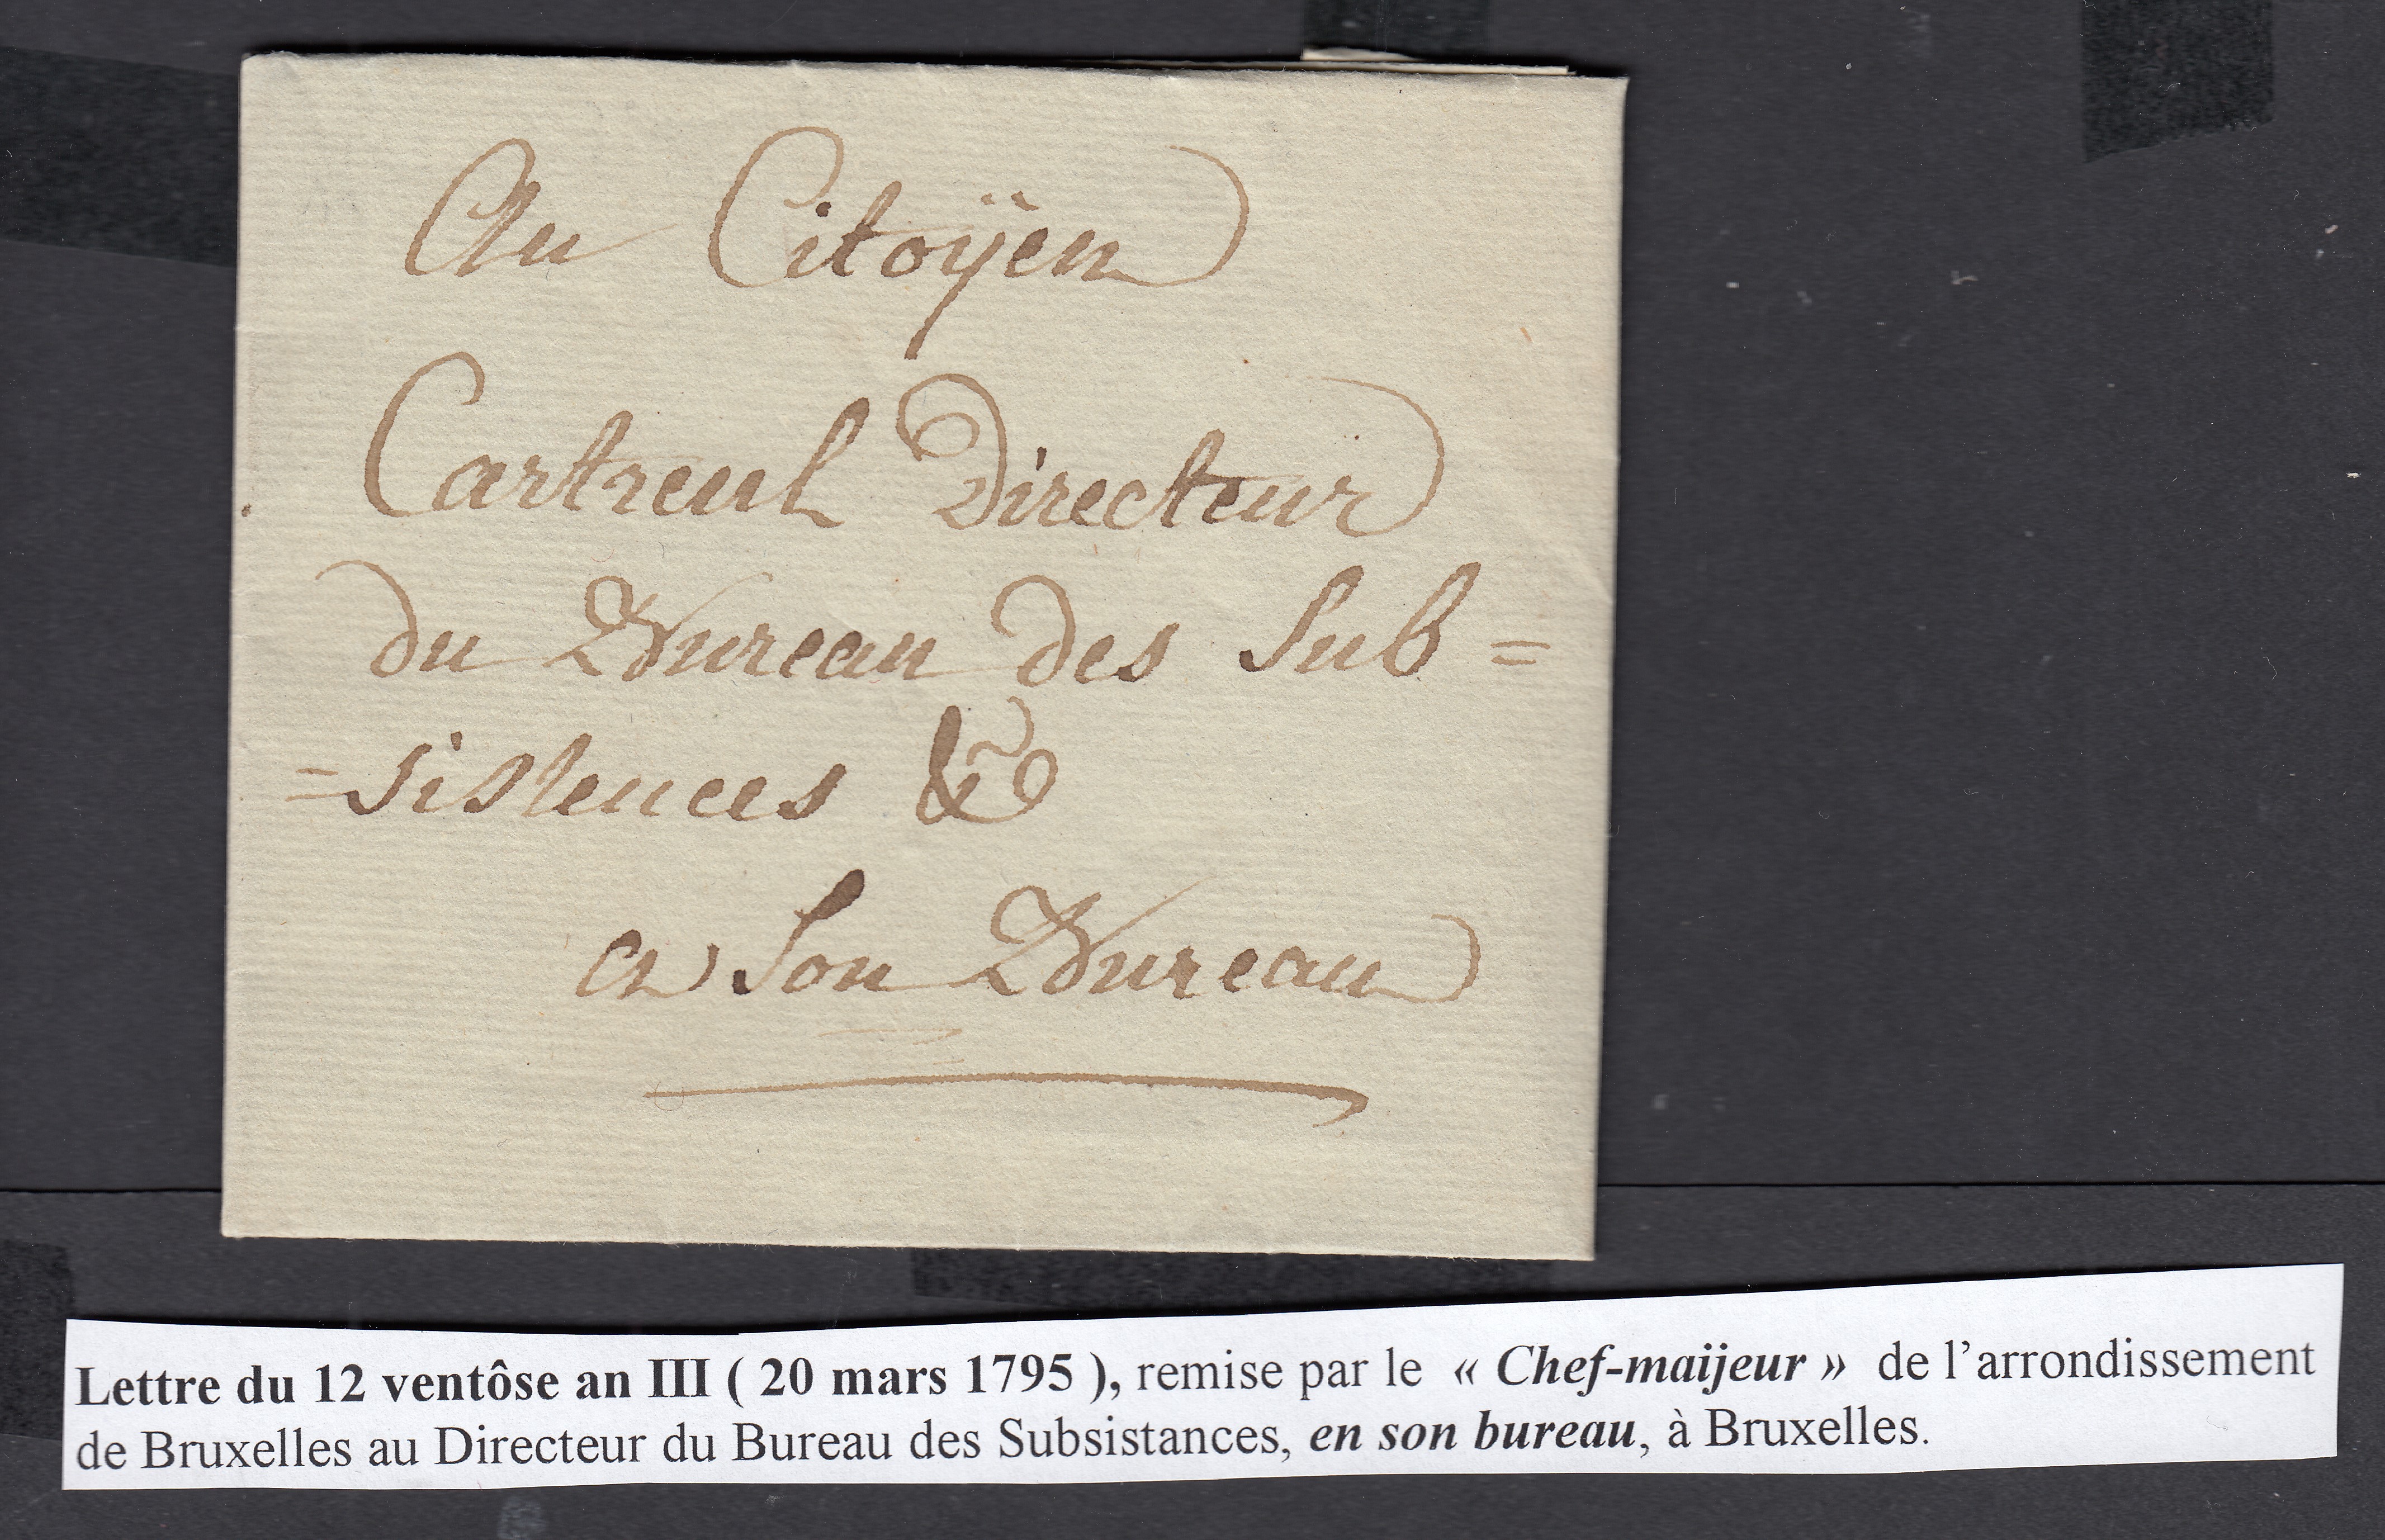 Au Citoÿen
Cartreul Directeur
du Bureau des Sub=
=sistences &c
a Son Bureau
Lettre du 12 ventôse an III ( 20 mars 1795 ), remise par le « Chef-maijeur » de l’arrondissement
de Bruxelles au Directeur du Bureau des Subsistances, en son bureau, à Bruxelles.